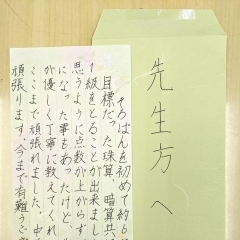 先生方へ
そろばんを初めて約6
目標だった珠算、暗算共
1級をとることが出来まし
思うように点数が上がらず
になった事もあったけど、
が優しく丁寧に教えてくれ
ここまで頑張れました。中
頑張ります。今まで有難うご